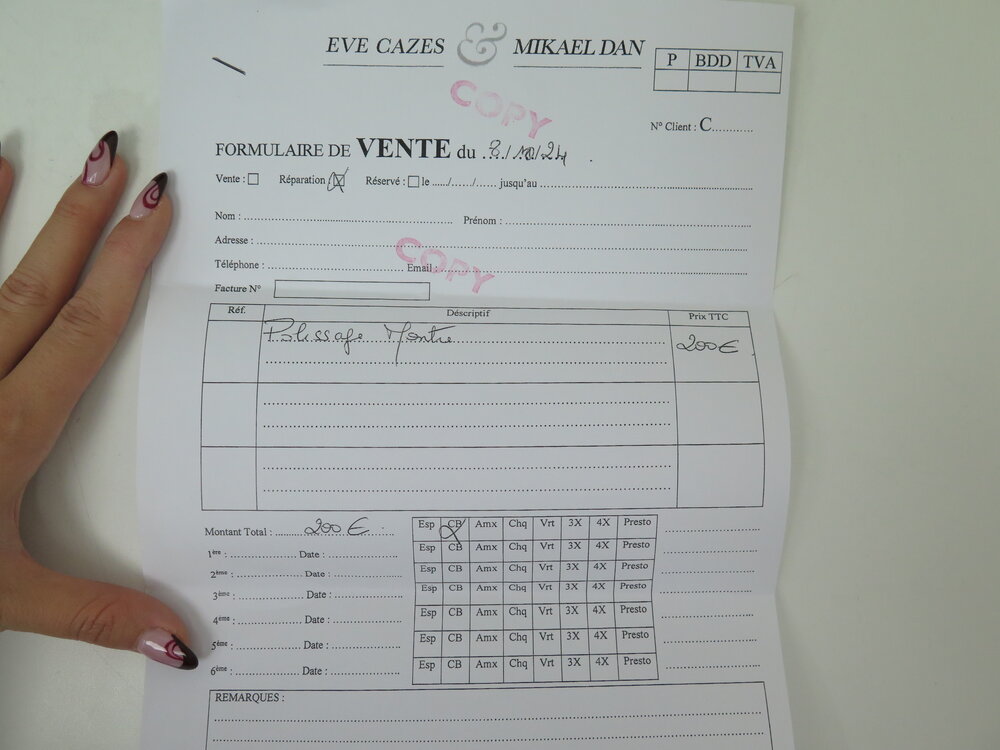 EVE CAZES & MIKAEL DAN
P BDD TVA
COPY
N° Client : C...........
FORMULAIRE DE VENTE du 8/10/24
Vente : ☐ Réparation ☒ Réservé : ☐ le ...../....../...... jusqu'au ..........
Nom : .......... Prénom : ..........
Adresse : ..........
COPY
Téléphone : .......... Email : ..........
Facture N°
Réf. Déscriptif Prix TTC
Polissage Montre 200€
Montant Total : 200 € Esp CB Amx Chq Vrt 3X 4X Presto
1ère : .......... Date : .......... Esp CB Amx Chq Vrt 3X 4X Presto
2ème : .......... Date : .......... Esp CB Amx Chq Vrt 3X 4X Presto
3ème : .......... Date : .......... Esp CB Amx Chq Vrt 3X 4X Presto
4ème : .......... Date : .......... Esp CB Amx Chq Vrt 3X 4X Presto
5ème : .......... Date : .......... Esp CB Amx Chq Vrt 3X 4X Presto
6ème : .......... Date : .......... Esp CB Amx Chq Vrt 3X 4X Presto
REMARQUES :